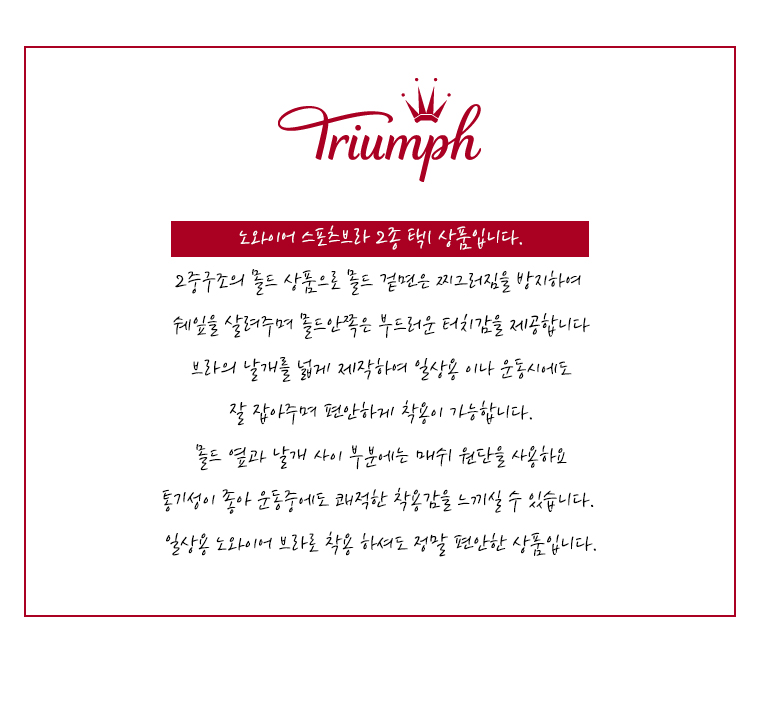 Triumph
노와이어 스포츠브라 2종 택1 상품입니다.
2중구조의 몰드 상품으로 몰드 겉면은 찌그러짐을 방지하여
쉐잎을 살려주며 몰드안쪽은 부드러운 터치감을 제공합니다
브라의 날개를 넓게 제작하여 일상용 이나 운동시에도
잘 잡아주며 편안하게 착용이 가능합니다.
몰드 옆과 날개 사이 부분에는 매쉬 원단을 사용하요
통기성이 좋아 운동중에도 쾌적한 착용감을 느끼실 수 있습니다.
일상용 노와이어 브라로 착용 하셔도 정말 편안한 상품입니다.